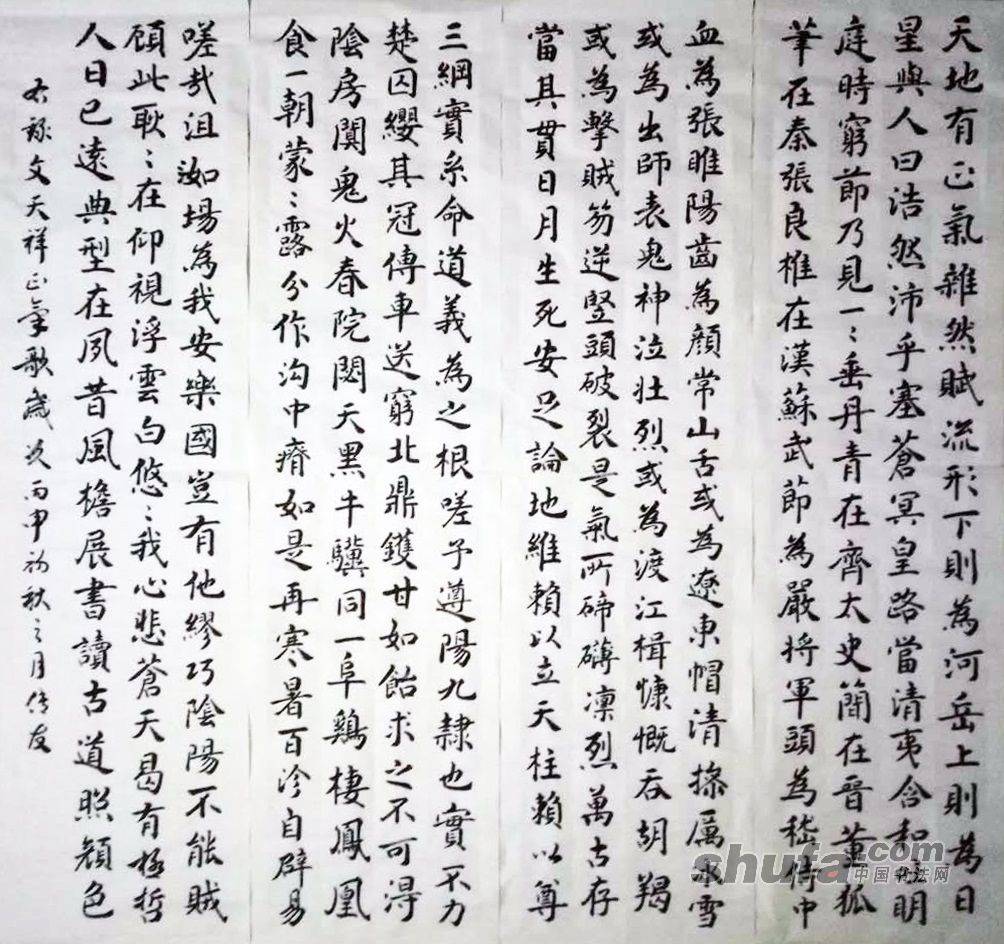 天地有正氣雜然賦流形下則為河岳上則為日
星與人曰浩然沛乎塞蒼冥皇路當清夷含和吐明
庭時窮節乃見一〻垂丹青在齊太史簡在晉董狐
筆在秦張良椎在漢蘇武節為嚴將軍頭為嵇侍中
血為張睢陽齒為顏常山舌或為遼東帽清操厲冰雪
或為出師表鬼神泣壯烈或為渡江楫慷慨吞胡羯
或為擊賊笏逆豎頭破裂是氣所磅礴凜烈萬古存
當其貫日月生死安足論地維賴以立天柱賴以尊
三綱實系命道義為之根嗟予遵陽九隸也實不力
楚囚纓其冠傳車送窮北鼎鑊甘如飴求之不可得
陰房闃鬼火春院閟天黑牛驥同一阜鷄棲鳳凰
食一朝蒙〻露分作沟中瘠如是再寒暑百沴自辟易
嗟哉沮洳場為我安樂國豈有他繆巧陰陽不能賊
顧此耿〻在仰視浮雲白悠〻我心悲蒼天曷有極哲
人日已遠典型在夙昔風檐展書讀古道照顏色
右錄文天祥正氣歌歲次丙申初秋之月传友
shufa.com
中国书法网